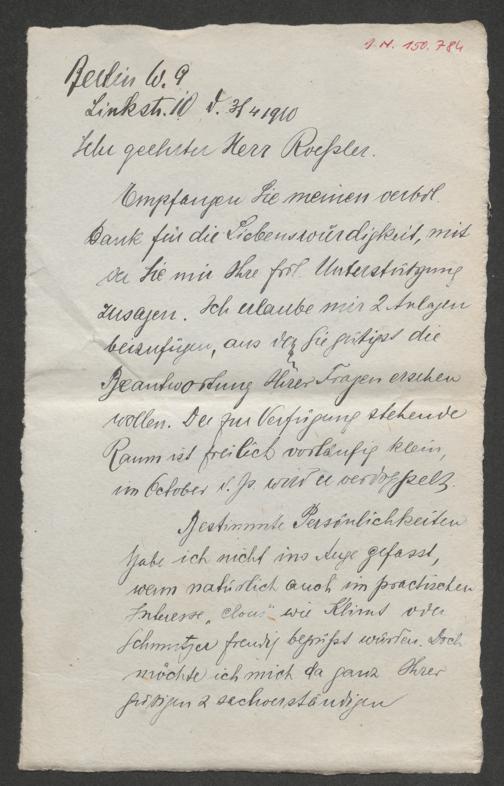 I. N. 150.784
Berlin W. 9
Linkstr. 10 d. 3/4 1910
Sehr geehrter Herr Roeßler.
Empfangen Sie meinen verbdl.
Dank für die Liebenswürdigkeit, mit
der Sie mir Ihre frdl. Unterstützung
zusagen. Ich erlaube mir 2 Anlagen
beizufügen, aus den Sie gütigst die
Beantwortung Ihrer Fragen ersehen
wollen. Der zur Verfügung stehende
Raum ist freilich vorläufig klein,
im October d. Js. wird er verdoppelt.
Bestimmte Persönlichkeiten
habe ich nicht ins Auge gefasst,
wenn natürlich auch im practischen
Interesse "clous" wie Klimt oder
Schmutzer freudig begrüßt würden. Doch
möchte ich mich da ganz Ihrer
gütigen & sachverständigen